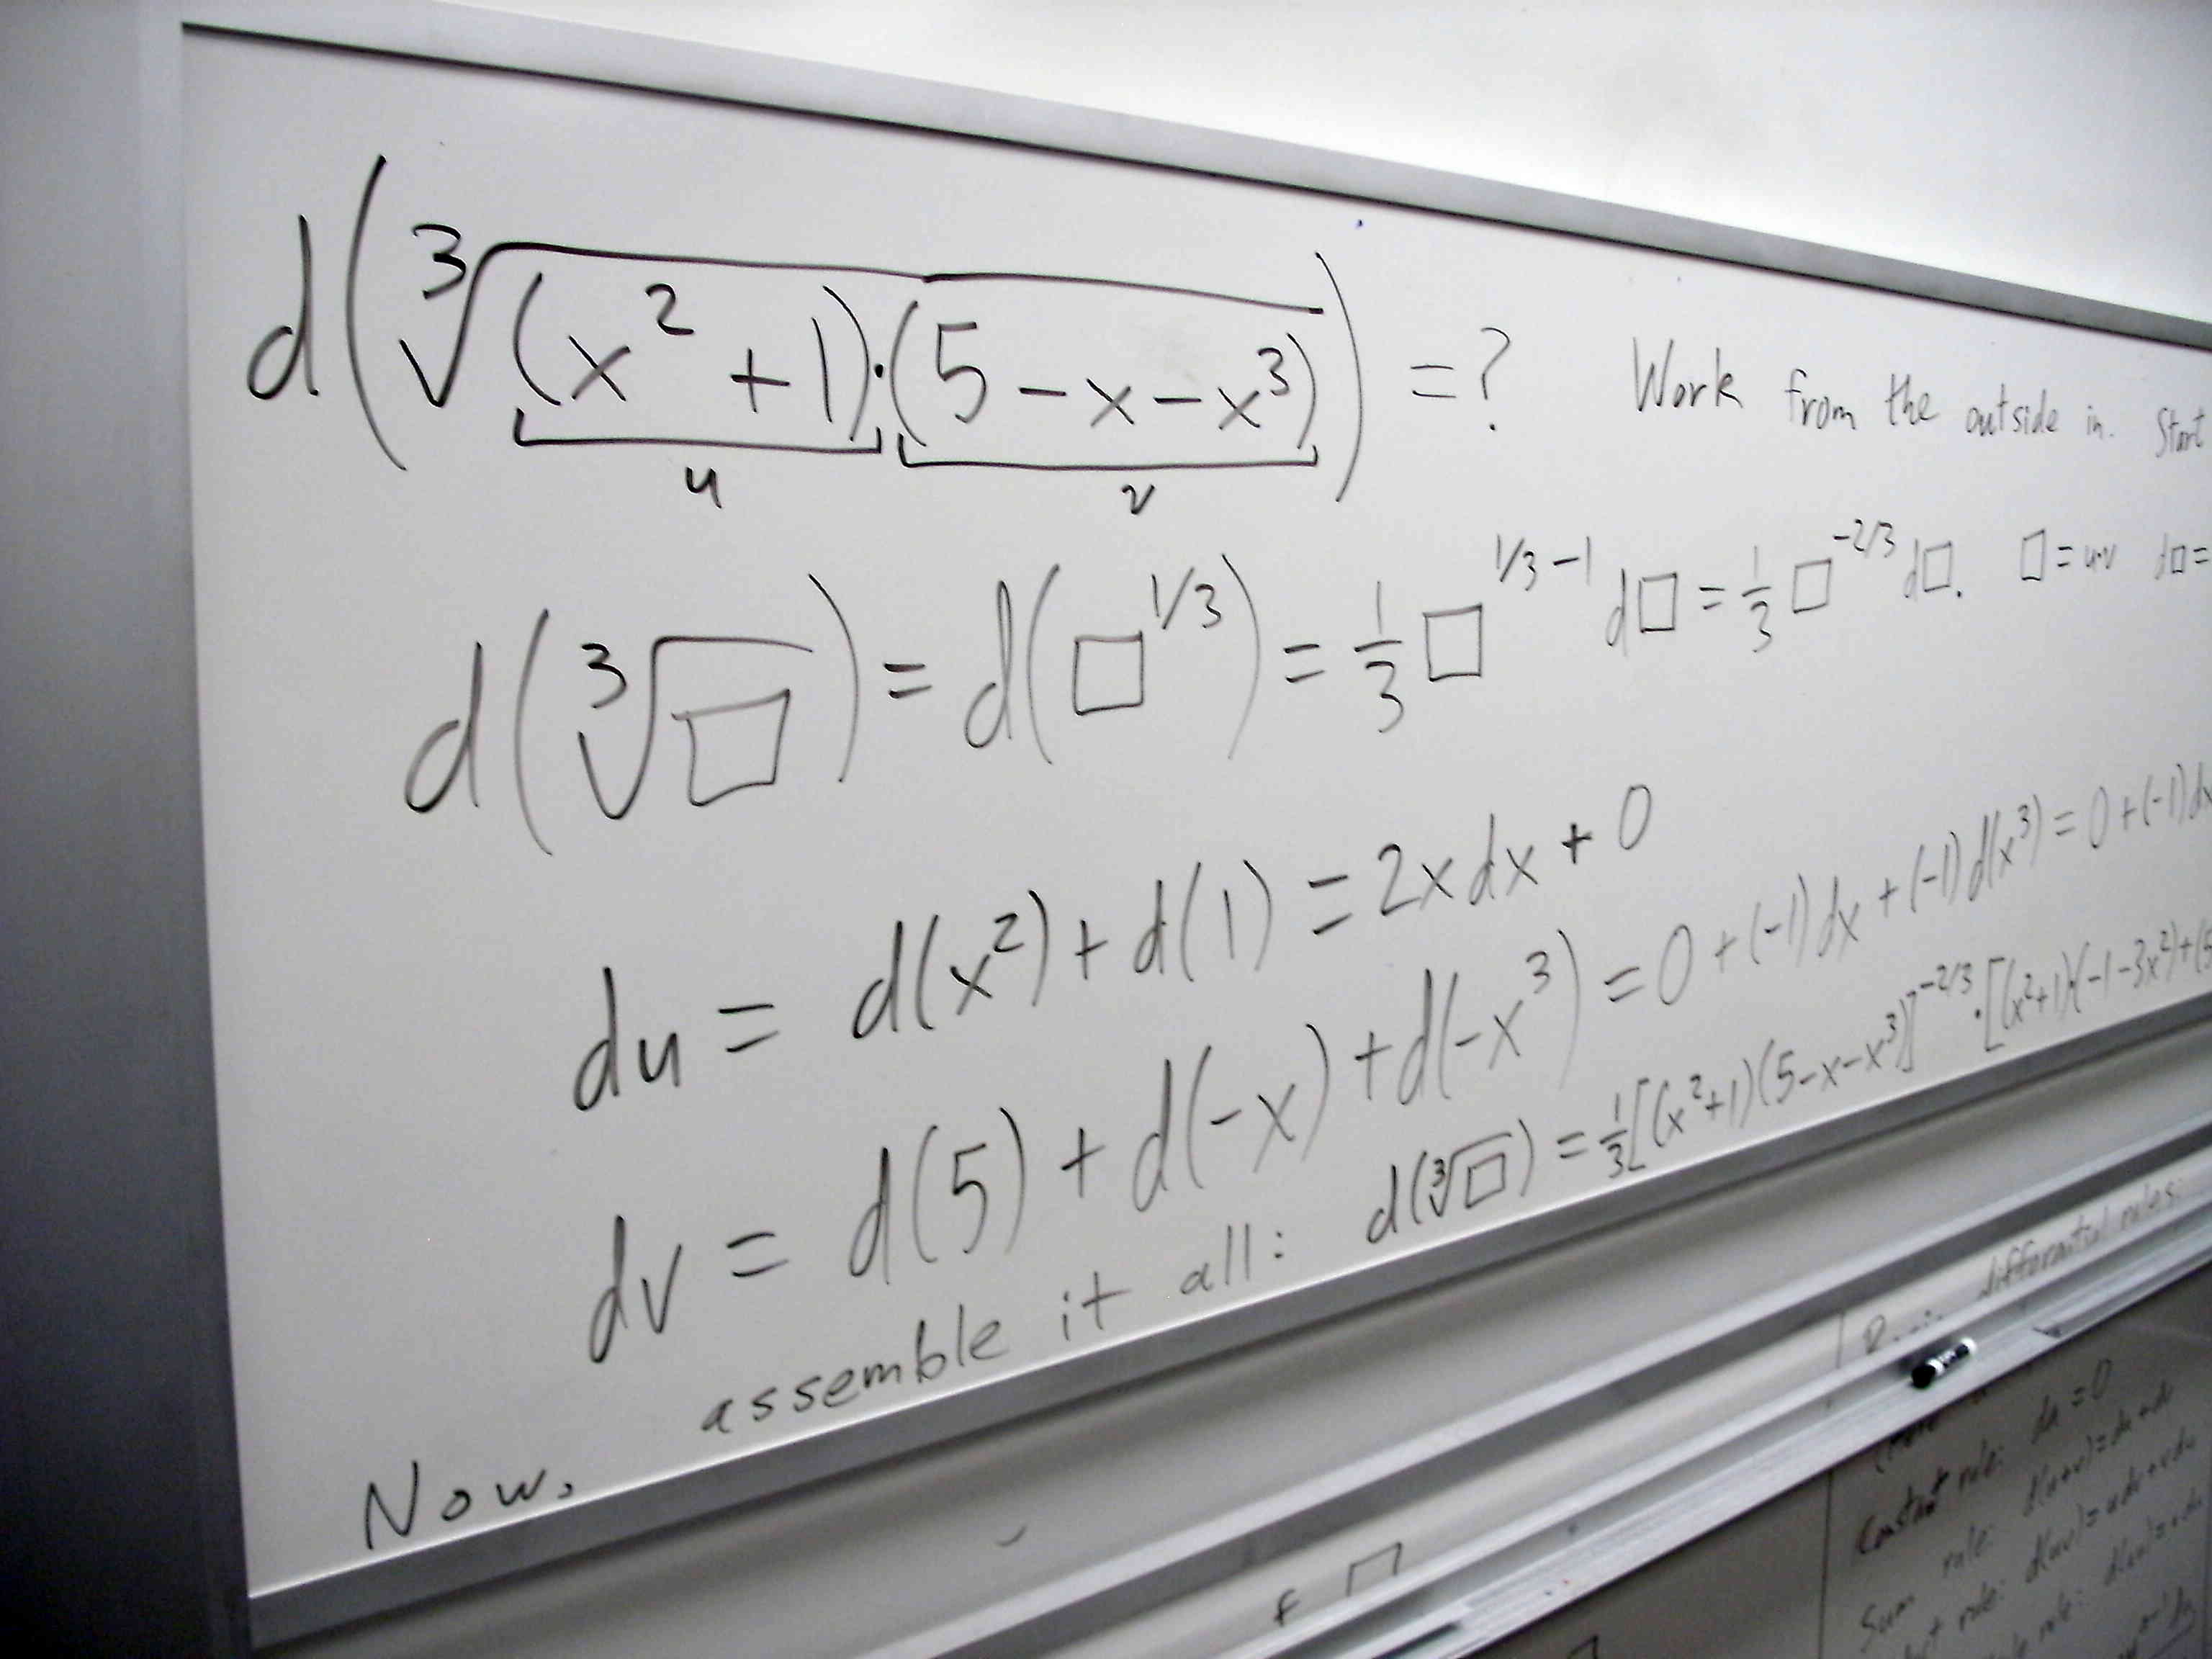 d(∛((x²+1)·(5-x-x³))) =? Work from the outside in. Start
u v
d(∛□) = d(□^1/3) = 1/3 □^1/3-1 d□ = 1/3 □^-2/3 d□. □=u·v d□=
du = d(x²)+d(1) = 2xdx+0
dv = d(5)+d(-x)+d(-x³) = 0+(-1)dx+(-1)d(x³) = 0+(-1)dx
Now, assemble it all: d(∛□) = 1/3[(x²+1)(5-x-x³)]^-2/3·[(x²+1)(-1-3x²)+(5
differential rules:
Constant rule: da=0
Sum rule: d(u+v)=du+d
rule: d(uv)=udv+vdu
rule: